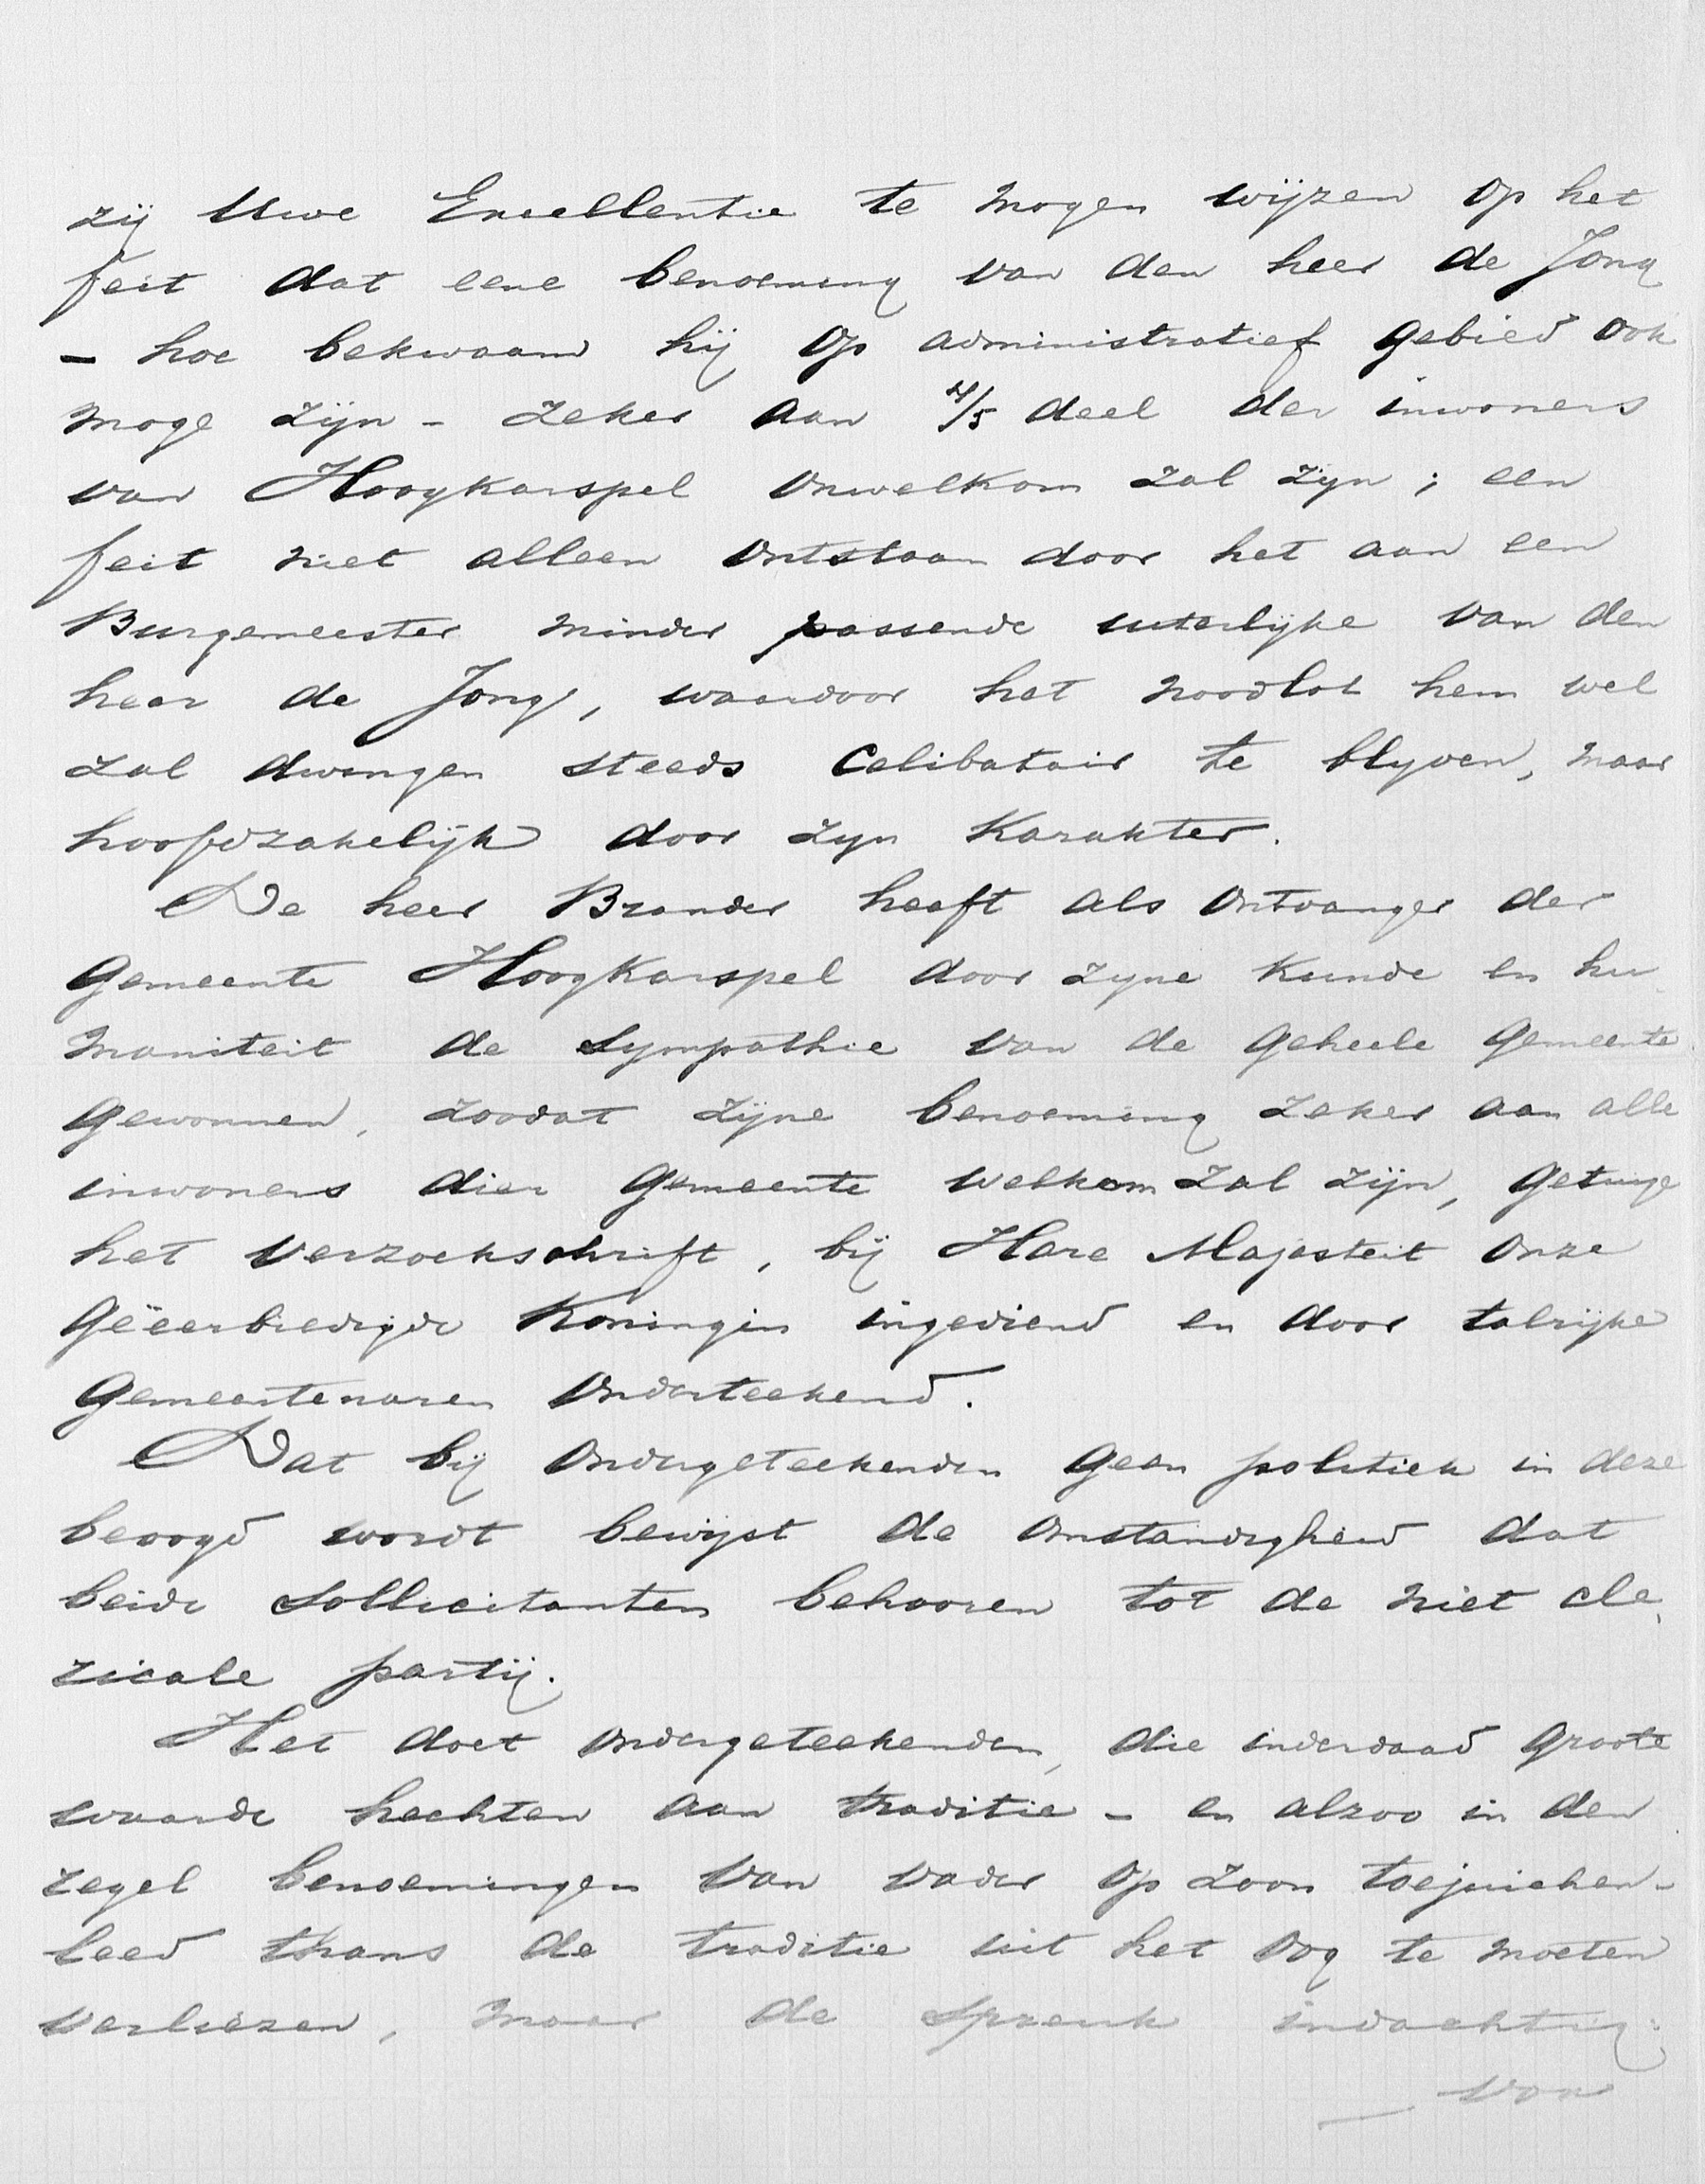 zij Uwe Excellentie te mogen wijzen op het
feit dat eene benoeming van den heer de Jong
- hoe bekwaam hij op administratief gebied ook
moge zijn - zeker aan 4/5 deel der inwoners
van Hoogkarspel onwelkom zal zijn; een
feit niet alleen ontstaan door het aan een
Burgemeester minder passende uiterlijke van den
heer de Jong, waardoor het noodlot hem wel
zal dwingen steeds celibatair te blyven, maar
hoofdzakelijk door zyn karakter.
De heer Brander heeft als ontvanger der
gemeente Hoogkarspel door zyne kunde en hu-
maniteit de sympathie van de geheele gemeente
gewonnen, zoodat zijne benoeming zeker aan alle
inwoners dier gemeente welkom zal zijn, getuige
het verzoekschrift, bij Hare Majesteit onze
geëerbiedigde Koningin ingediend en door talrijke
gemeentenaren onderteekend.
Dat bij ondergeteekenden geen politiek in deze
beoogd wordt bewijst de omstandigheid dat
beide sollicitanten behooren tot de niet cle-
ricale partij.
Het doet ondergeteekenden, die inderdaad groote
waarde hechten aan traditie - en alzoo in den
regel benoemingen van vader op zoon toejuichen -
leed thans de traditie uit het oog te moeten
verliezen, maar de spreuk indachtig:
_ van